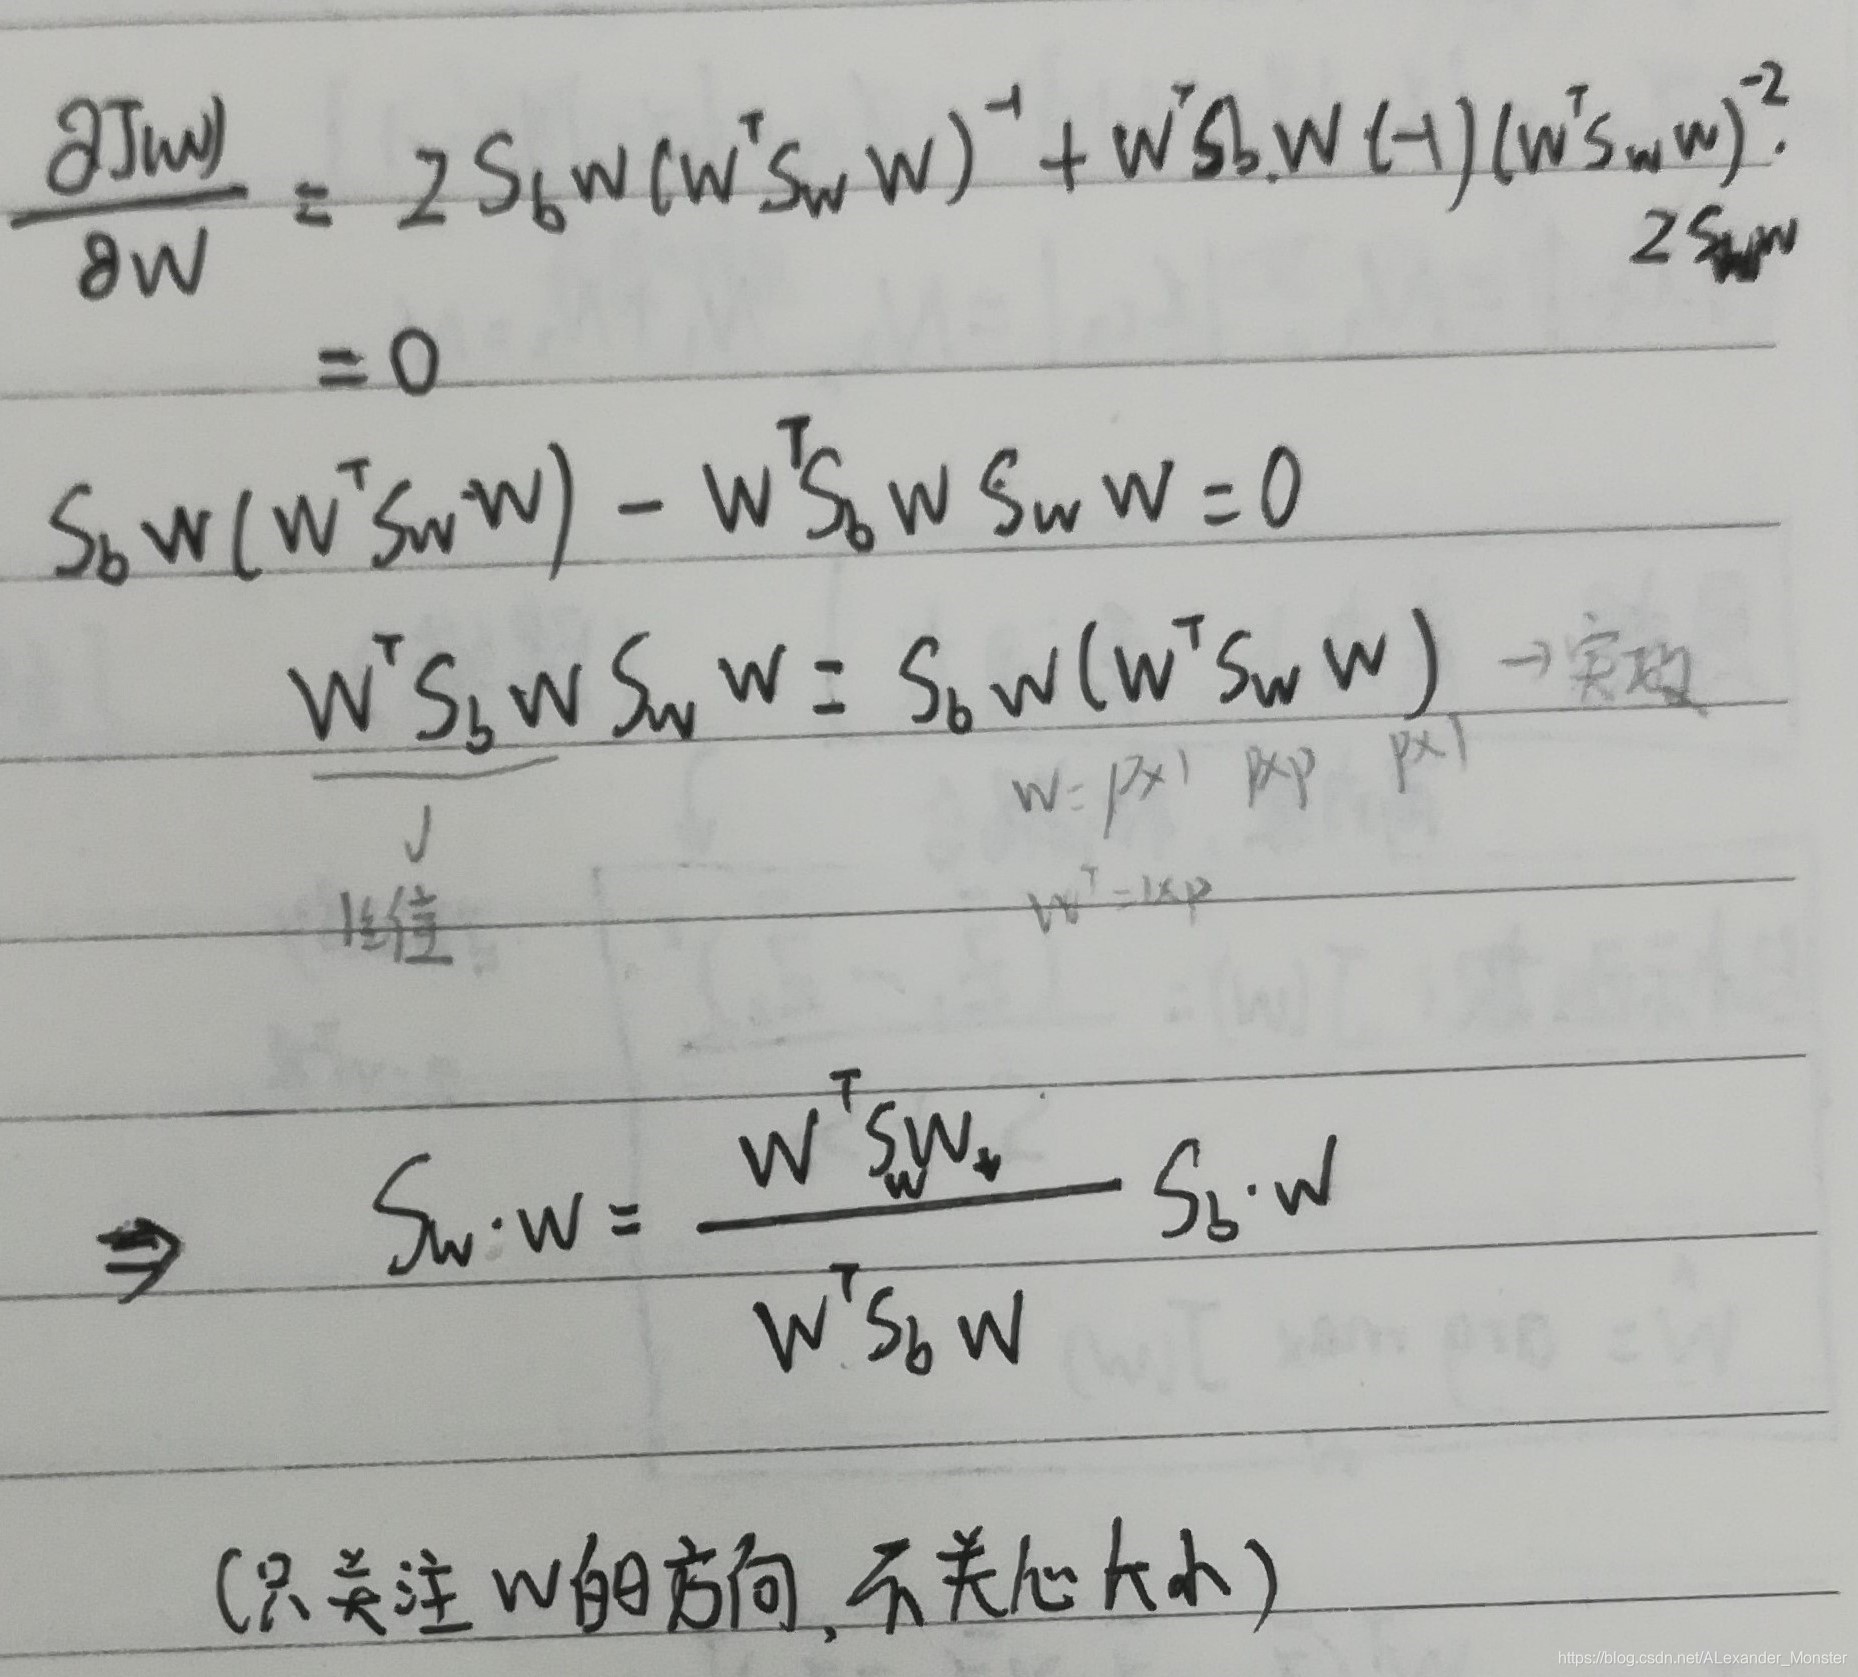 ∂J(w)/∂W = 2 S_b W (W^T S_w W)^{-1} + W^T S_b W (-1) (W^T S_w W)^{-2} ·
2 S_w W
= 0
S_b W (W^T S_w W) - W^T S_b W S_w W = 0
W^T S_b W S_w W = S_b W (W^T S_w W) → 实数
W = p×1 p×p p×1
W^T = 1×p
1维
⇒ S_w · W = (W^T S_w W) / (W^T S_b W) S_b · W
(只关注 W 的方向, 不关心大小)
https://blog.csdn.net/ALexander_Monster